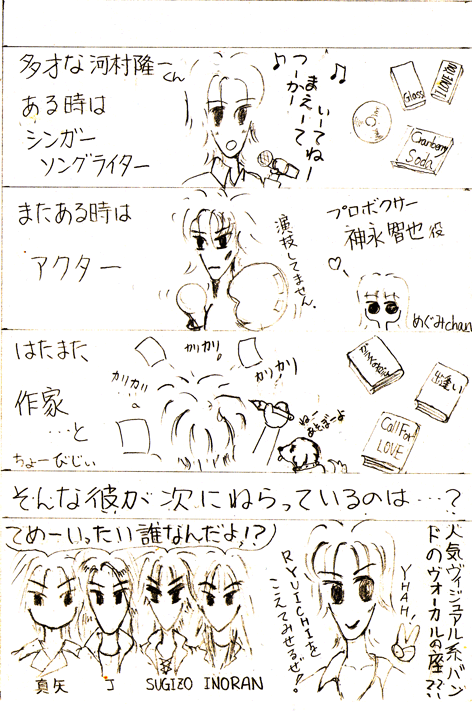 多才な河村隆一くん
ある時は
シンガー
ソングライター
♪つーかーまーえーてーいーてねー♪
Glass
I LOVE YOU
Cranberry
Soda
またある時は
アクター
演技してません。
プロボクサー
神永智也役
♡
めぐみchan
はたまた
作家
…と
ちょーびじぃ
カリカリ
カリカリ
カリカリ
ねー
あそぼーよ
出逢い
Call For
LOVE
そんな彼が次にねらっているのは…?
てめーいったい誰なんだよ!?
真矢
J
SUGIZO
INORAN
人気ヴィジュアル系バン
ドのヴォーカルの座??
YHAH!
RYUICHIを
こえてみせるぜ!!